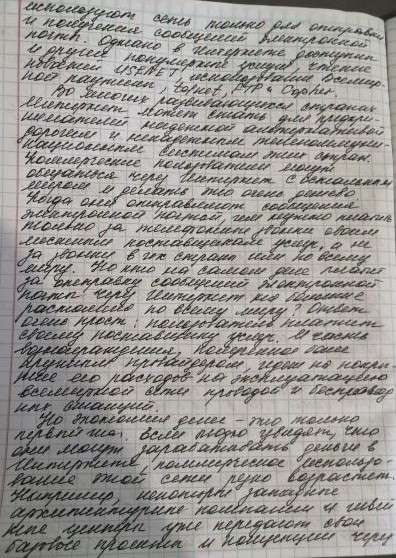 используют сеть только для отправки
и получения сообщений электронной
почты. Однако в интернете доступны
и другие популярные услуги: чтение
новостей USENET, использование всемир-
ной паутины, telnet, FTP и Gopher.
Во многих развивающихся странах
Интернет может стать для предпри-
нимателей надежной альтернативой
дорогим и ненадежным телекоммуни-
национальным системам этих стран.
Коммерческие пользователи могут
общаться через Интернет с остальным
миром и делать это очень дешево
Когда они отправляют сообщения
электронной почтой, им нужно платить
только за телефонные звонки своим
местным поставщикам услуг, а не
за звонки в их страны или по всему
миру. Но кто на самом деле платит
за отправку сообщений электронной
почты через Интернет на большие
расстояния по всему миру? Ответ
очень прост: пользователи платят
своему поставщику услуг. И часть
вознаграждения, более
крупным провайдером, идет на покры-
тие его расходов на эксплуатацию
всемирной сети проводов и беспровод
ных станций.
Но экономия денег - это только
первый шаг. Если люди увидят, что
они могут зарабатывать деньги в
Интернете, коммерческое использо-
вание этой сети резко возрастет.
Например, некоторые западные
архитектурные компании и
центры уже передают свои
базовые проекты и концепции через